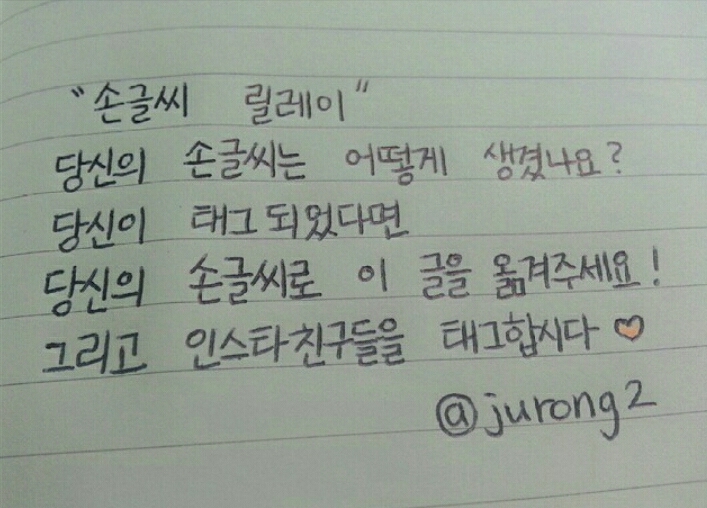 "손글씨 릴레이"
당신의 손글씨는 어떻게 생겼나요?
당신이 태그되었다면
당신의 손글씨로 이 글을 옮겨주세요!
그리고 인스타친구들을 태그합시다♡
@jurong2